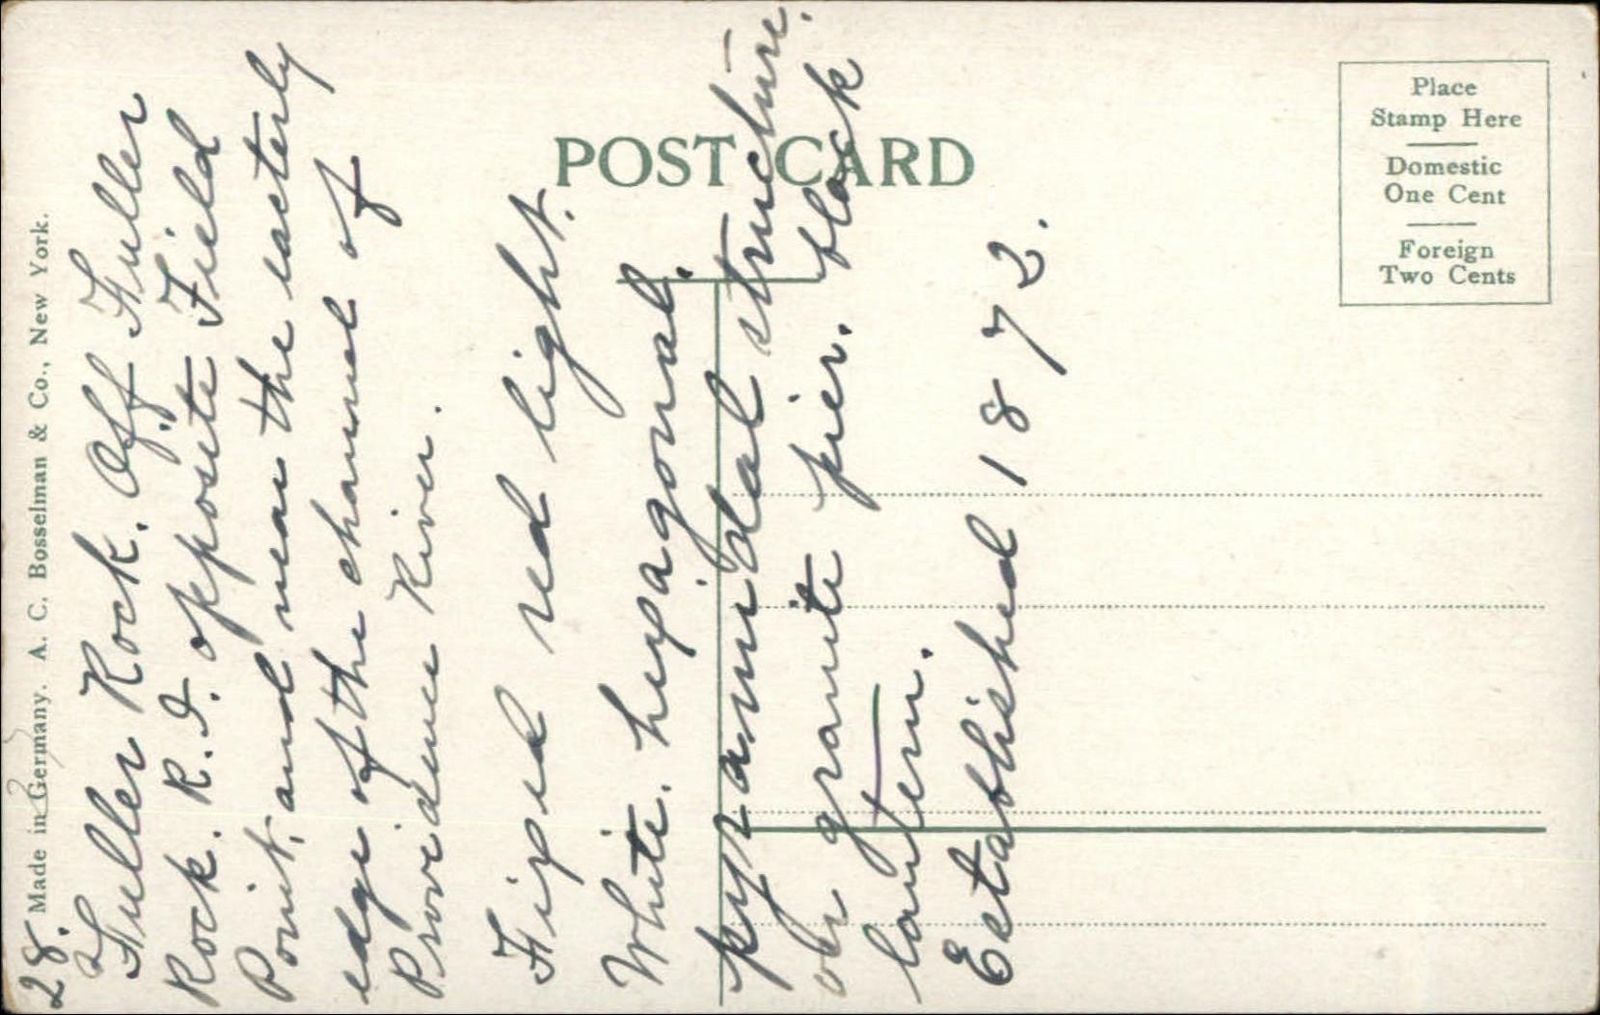 28.
Fuller Rock. Off Fuller
Rock. R.I. opposite Field
Point, and near the easterly
edge of the channel of
Providence River.
Fixed red light.
White. hexagonal.
pyramidal structure.
on granite pier. black
lantern.
Established 1872.
Made in Germany. A. C. Bosselman & Co., New York.
POST CARD
Place
Stamp Here
Domestic
One Cent
Foreign
Two Cents